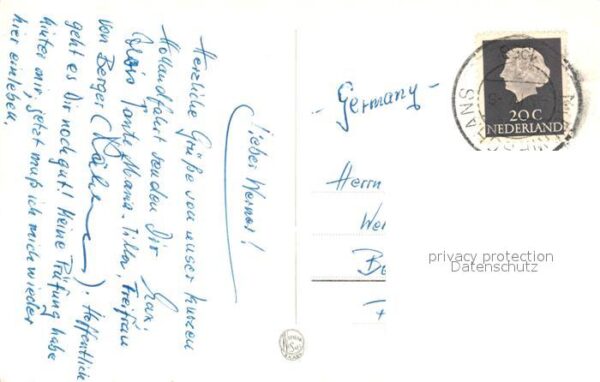 Lieber Werner!
Herzliche Grüße von unser kurzen
Hollandfahrt senden Dir Max,
Tante Maria. Freifrau
von Berger ( ). Hoffentlich
geht es Dir noch gut! Meine Prüfung habe
hinter mir, jetzt muß ich mich wieder
hier einleben.
- Germany -
Herrn
We
Be
F
20 C
NEDERLAND
privacy protection
Datenschutz